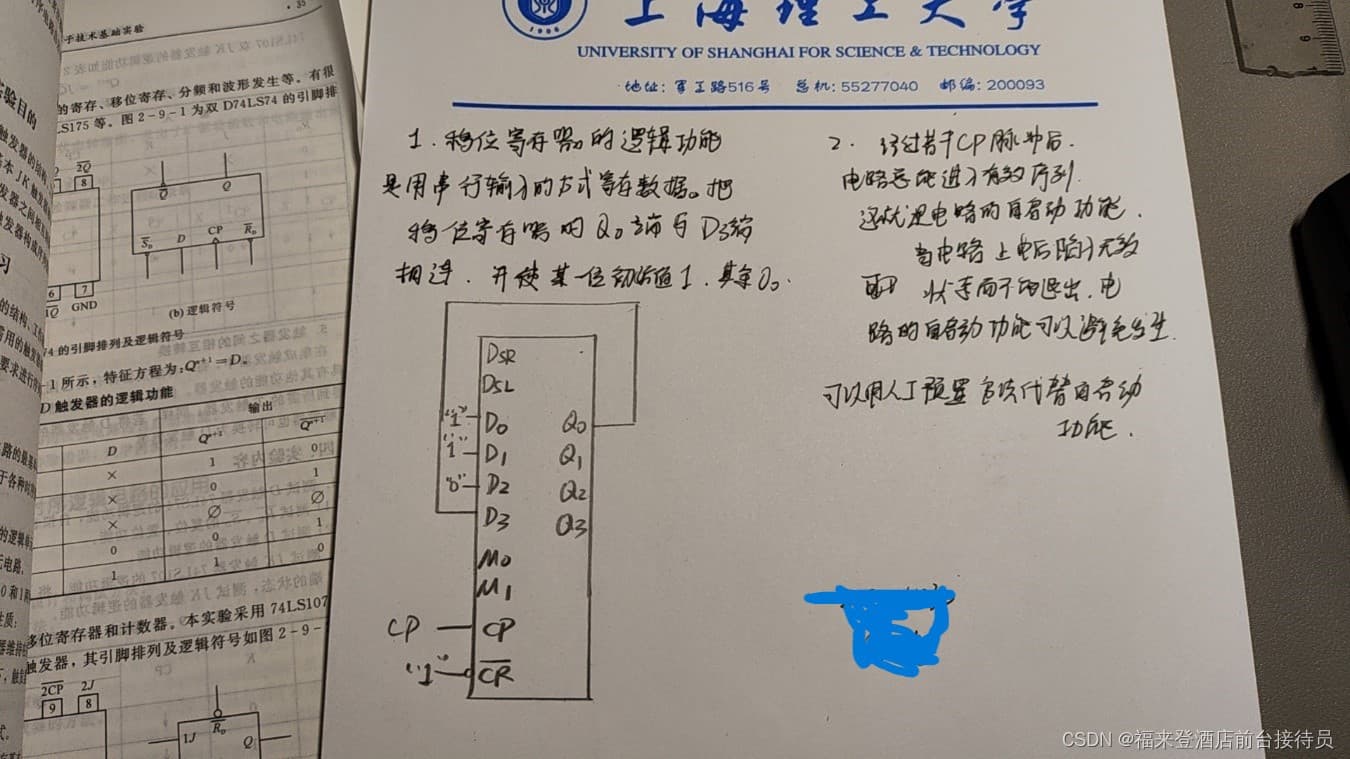 ·35
子技术基础实验
验目的
的寄存、移位寄存、分频和波形发生等。有很
LS175 等。图 2-9-1 为双 D74LS74 的引脚排
2Q̅
8
Q̅
Q
S̅D
D
CP
R̅D
6
7
GND
(b) 逻辑符号
74 的引脚排列及逻辑符号
-1 所示，特征方程为：Qⁿ⁺¹＝D。
D 触发器的逻辑功能
输出
D
Qⁿ⁺¹
Q̅ⁿ⁺¹
×
1
0
×
0
1
×
∅
∅
0
0
1
1
1
0
移位寄存器和计数器。本实验采用 74LS107
触发器，其引脚排列及逻辑符号如图 2-9-
2C̅P̅
2J
9
8
1J
R̅D
Q
1906
上海理工大学
UNIVERSITY OF SHANGHAI FOR SCIENCE & TECHNOLOGY
地址: 军工路516号 总机: 55277040 邮编: 200093
1. 移位寄存器的逻辑功能
是用串行输入的方式寄存数据。把
移位寄存器的 Q0 端与 D3端
相连. 并使某一位初始值1. 其余0。
DSR
DSL
"1"
D0
Q0
"1"
D1
Q1
"0"
D2
Q2
D3
Q3
M0
M1
CP
CP
"1"
C̅R̅
2. 经过若干CP脉冲后.
电路总能进入有效序列.
这就是电路的自启动功能.
当电路上电后陷入无效
状态而不能退出. 电
路的自启动功能可以避免发生.
可以用人工预置方法代替自启动
功能.
CSDN @福来登酒店前台接待员